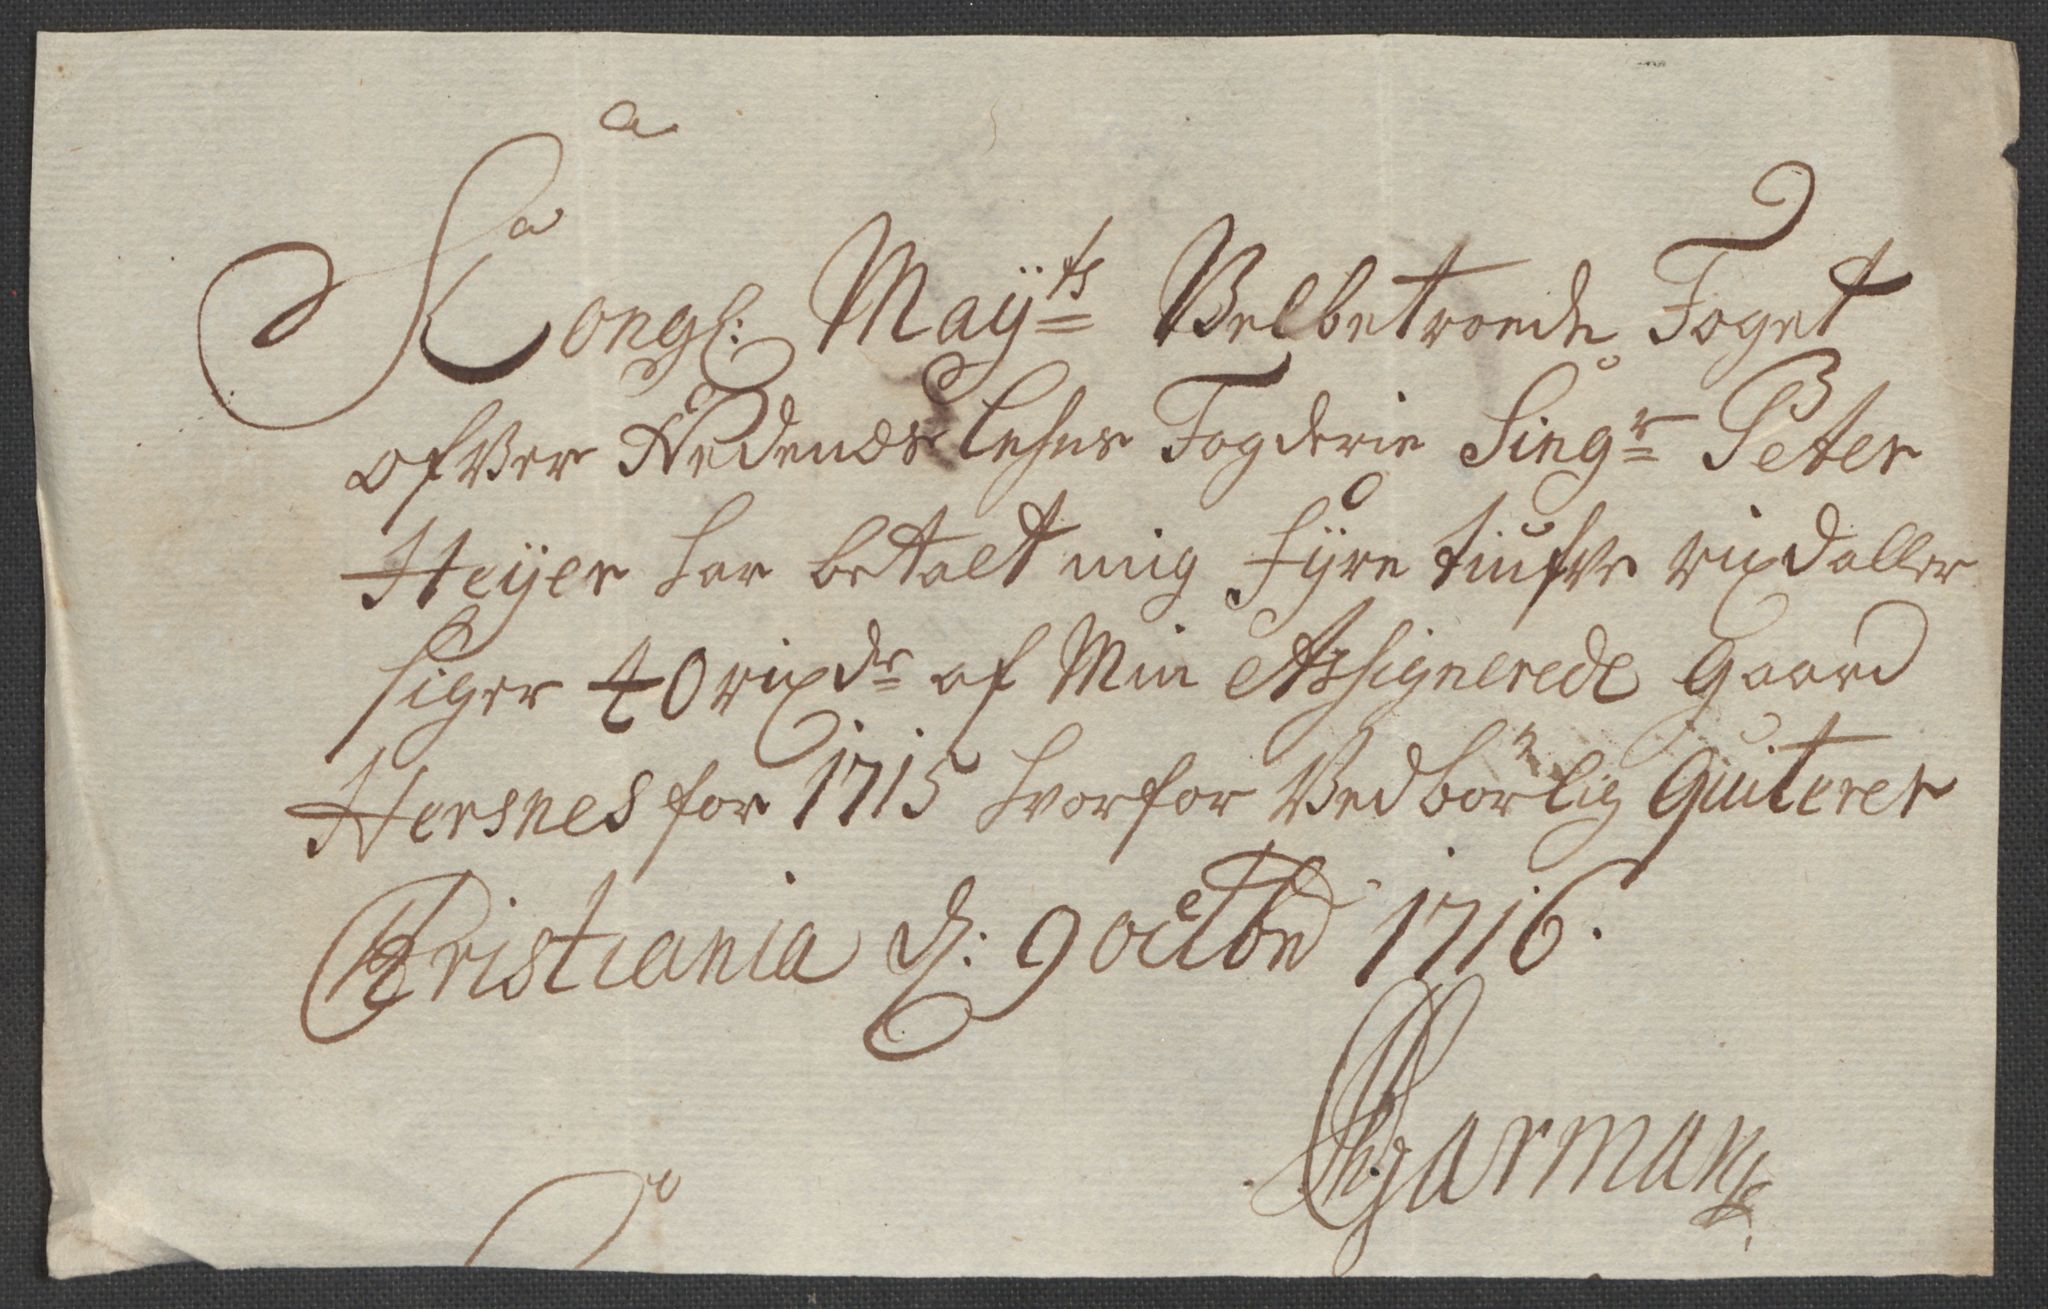 Kongl: Maÿts Velbetroede Foget
ofver Nedenæs Lehns Fogderie Singr Peter
Heÿer har betalt mig fÿre tiufve rixdaller
siger 40 rixdr af Min Assignerede gaard
Hersnes for 1715 hvorfor Vedbørlig quiterer
Christiania d: 9 octbr 1716.
Garman